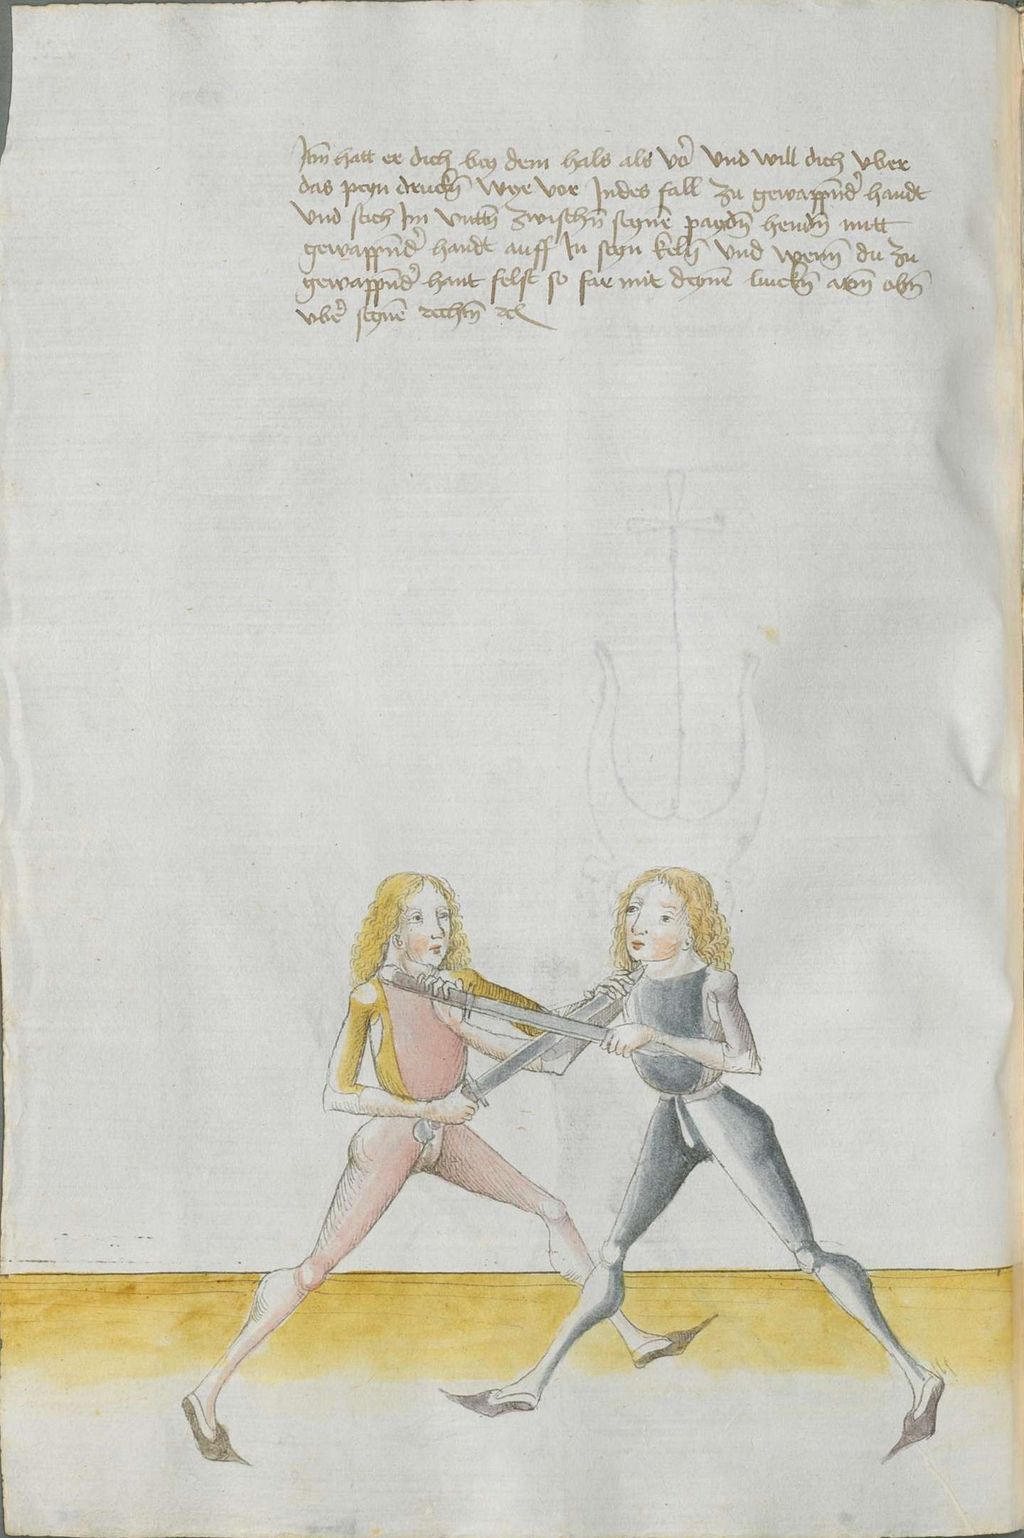 Itm hatt er dich bey dem hals als vor̉ vnd will dich vber
das peyn druckn̄ wye vor Indes fall zu gewappnd̉ handt
vnd stich Im vnttn̄ zwischn̄ seynē paydn̄ hendn̄ mitt
gewappnd̉ handt auff In seyn keln̄ vnd wenn̄ du zu
gewappnd̉ hant felst so far mit deynē linckn̄ arm̄ obn̄
vber̉ seynē rechtn̄ rc